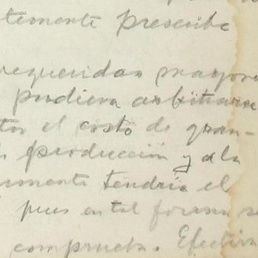 temente prescribe
requeridas mayore
pudiera arbitrarse
tos el costo de gran-
producción y a la
mente tendría el
pues en tal forma se
comprueba. Efectiva